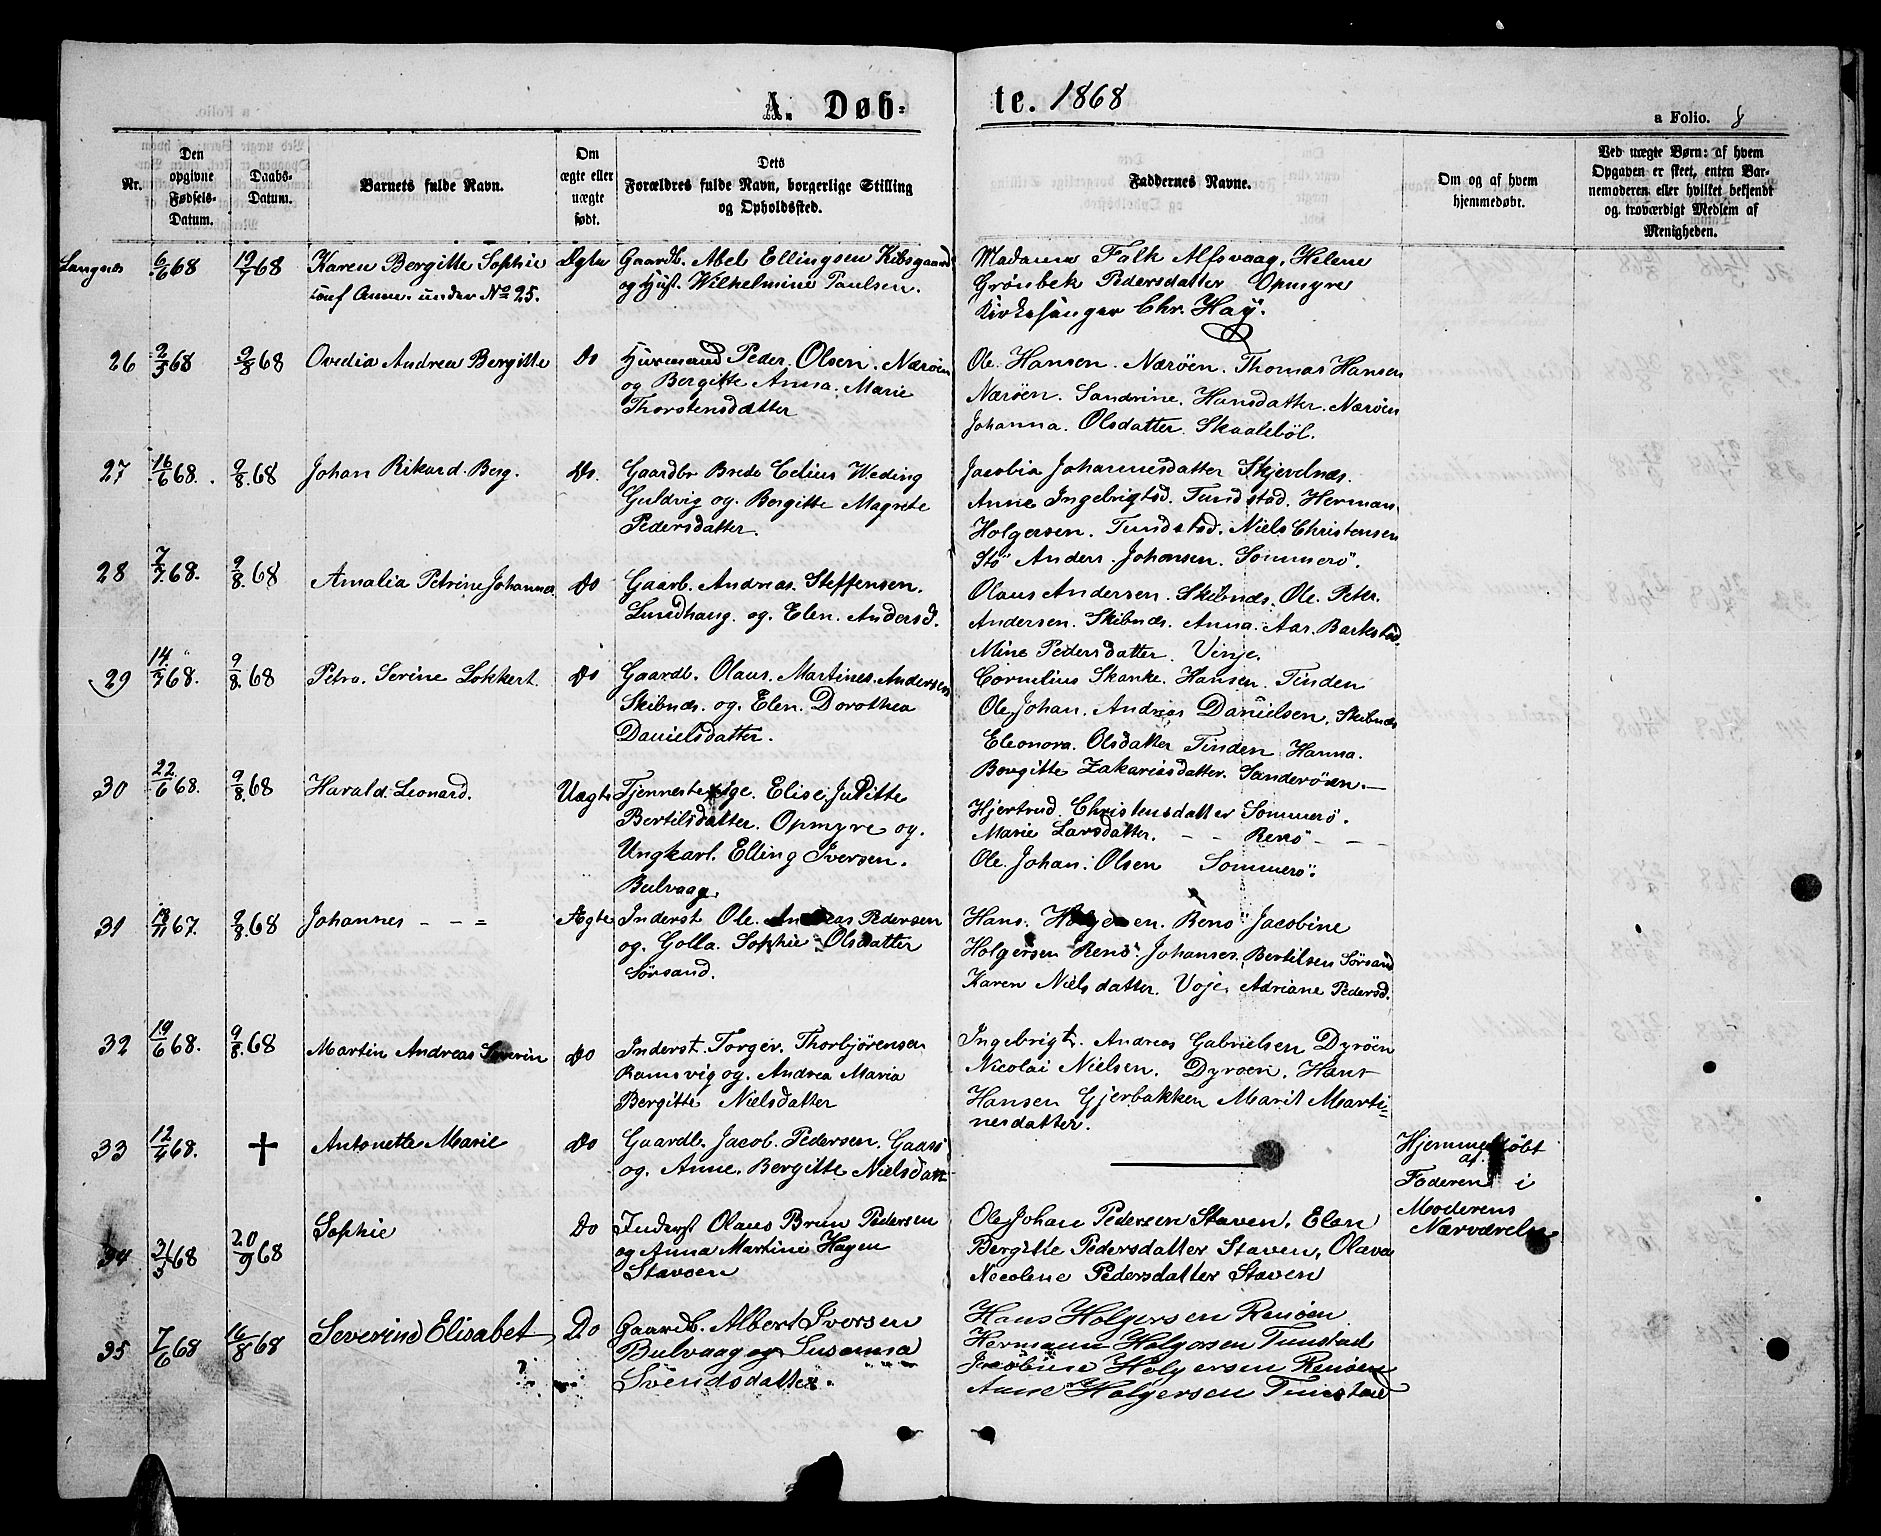 A. Døb-
te. 1868
a Folio. 8
Nr.
Den
opgivne
Fødsels-
Datum.
Daabs-
Datum.
Barnets fulde Navn.
Om
ægte eller
uægte
født.
Dets
Forældres fulde Navn, borgerlige Stilling
og Opholdssted.
Faddernes Navne.
Om og af hvem
hjemmedøbt.
Ved uægte Børn: af hvem
Opgaven er skeet, enten Bar-
nemoderen eller hvilket bekjendt
og troværdigt Medlem af
Menigheden.
Langnes 6/6 68 19/7 68 Karen Bergitte Sophie
conf Anm. under No 25.
Ægte
Gaardb. Abel Ellingsen Kibsgaard
og Hust. Wilhelmine Paulsen.
Madame Falk Alfsvaag, Helene
Grönbek Pedersdatter Opmyre
Kirkesanger Chr. Høy.
26 2/5 68 9/8 68 Ovedia Andrea Bergitte Do
Husmand Peder Olsen. Næröen
og Bergitte Anna Marie
Thorstensdatter
Ole Hansen. Næröen. Thomas Hansen
Nærøen. Sandrine Hansdatter. Nærøen
Johanna. Olsdatter. Skaalebøl.
27 16/6 68. 9/8 68 Johan Rikard. Berg. Do.
Gaardbr Brede Celius Weding
Guldvig og. Bergitte Magrete
Pedersdatter.
Jacobia Johannesdatter Skjevelnæs.
Anne Ingebrigtsd. Tundstad. Herman
Holgersen. Tundstad. Niels Christensen
Stø Anders Johansen. Sommerø.
28 7/7 68. 9/8 68 Amalia Petrine Johanna Do
Gaarb. Andreas. Steffensen.
Lundhaug. og. Elen. Andersd.
Olaus Andersen. Skibnæs. Ole Peter.
Andersen. Skibnæs. Anna. Aar. Barkstad.
Mine Pedersdatter. Vinje.
29 14/7 68. 9/8 68 Petra. Serine Lokkert. Do
Gaardb. Olaus. Martines. Andersen
Skibnæs. og. Elen. Dorothea
Danielsdatter.
Cornelius Skanke. Hansen. Tinden
Ole Johan. Andreas Danielsen. Skibnæs
Eleonora. Olsdatter Tinden Hanna.
Borgitte Zakariasdatter. Sanderöen.
30 22/6 68. 9/8 68 Harald. Leonard. Uægte
Tjenestepige. Elise Juditte
Bertilsdatter. Opmyre og.
Ungkarl. Elling Iversen.
Bulvaag.
Hjertrud. Christensdatter Sommerø.
Marie Larsdatter. - - Renö - -
Ole. Johan. Olsen Sommerö.
31 13/11 67. 9/8 68 Johannes - - = Ægte
Inderst Ole. Andreas Pedersen
og. Golla. Sophie Olsdatter
Sörsand.
Hans. Holgersen. Renö Jacobine
Holgersen Renö. Johannes. Bertilsen Sørsand
Karen Nielsdatter. Voje. Adriane Pedersd.
32 19/6 68. 9/8 68 Martin Andreas Severin Do
Inderst. Torger. Thorbjörensen
Ramsvig og. Andrea Maria
Bergitte Nielsdatter
Ingebrigt. Andreas Gabrielsen Dyröen
Nicolai Nielsen. Dyroen. Hans
Hansen Gjerbakken Marit Marti-
nesdatter.
33 12/4 68. † Antonette Marie Do
Gaardb. Jacob. Pedersen. Gaasö
og. Anne. Bergitte Nielsdatt
Hjemmedøbt
af
Faderen i
Moderens
Nærværelse
34 31/5 68 20/9 68 Sophie Do
Inderst Olaus Brun Pedersen
og Anna Martine Hagen
Stavöen
Ole Johan Pedersen Staven, Elen
Bergitte Pedersdatter Staven, Olava
Nicoline Pedersdatter Staven
35 7/6 68 16/8 68 Severine Elisabet Do
Gaardb. Albert Iversen
Bulvaag og Susanna
Svendsdatter.
Hans Holgersen Renöen
Hermann Holgersen Tunstad
Jacobine Holgersen Renöen
Anne Holgersen Tunstad